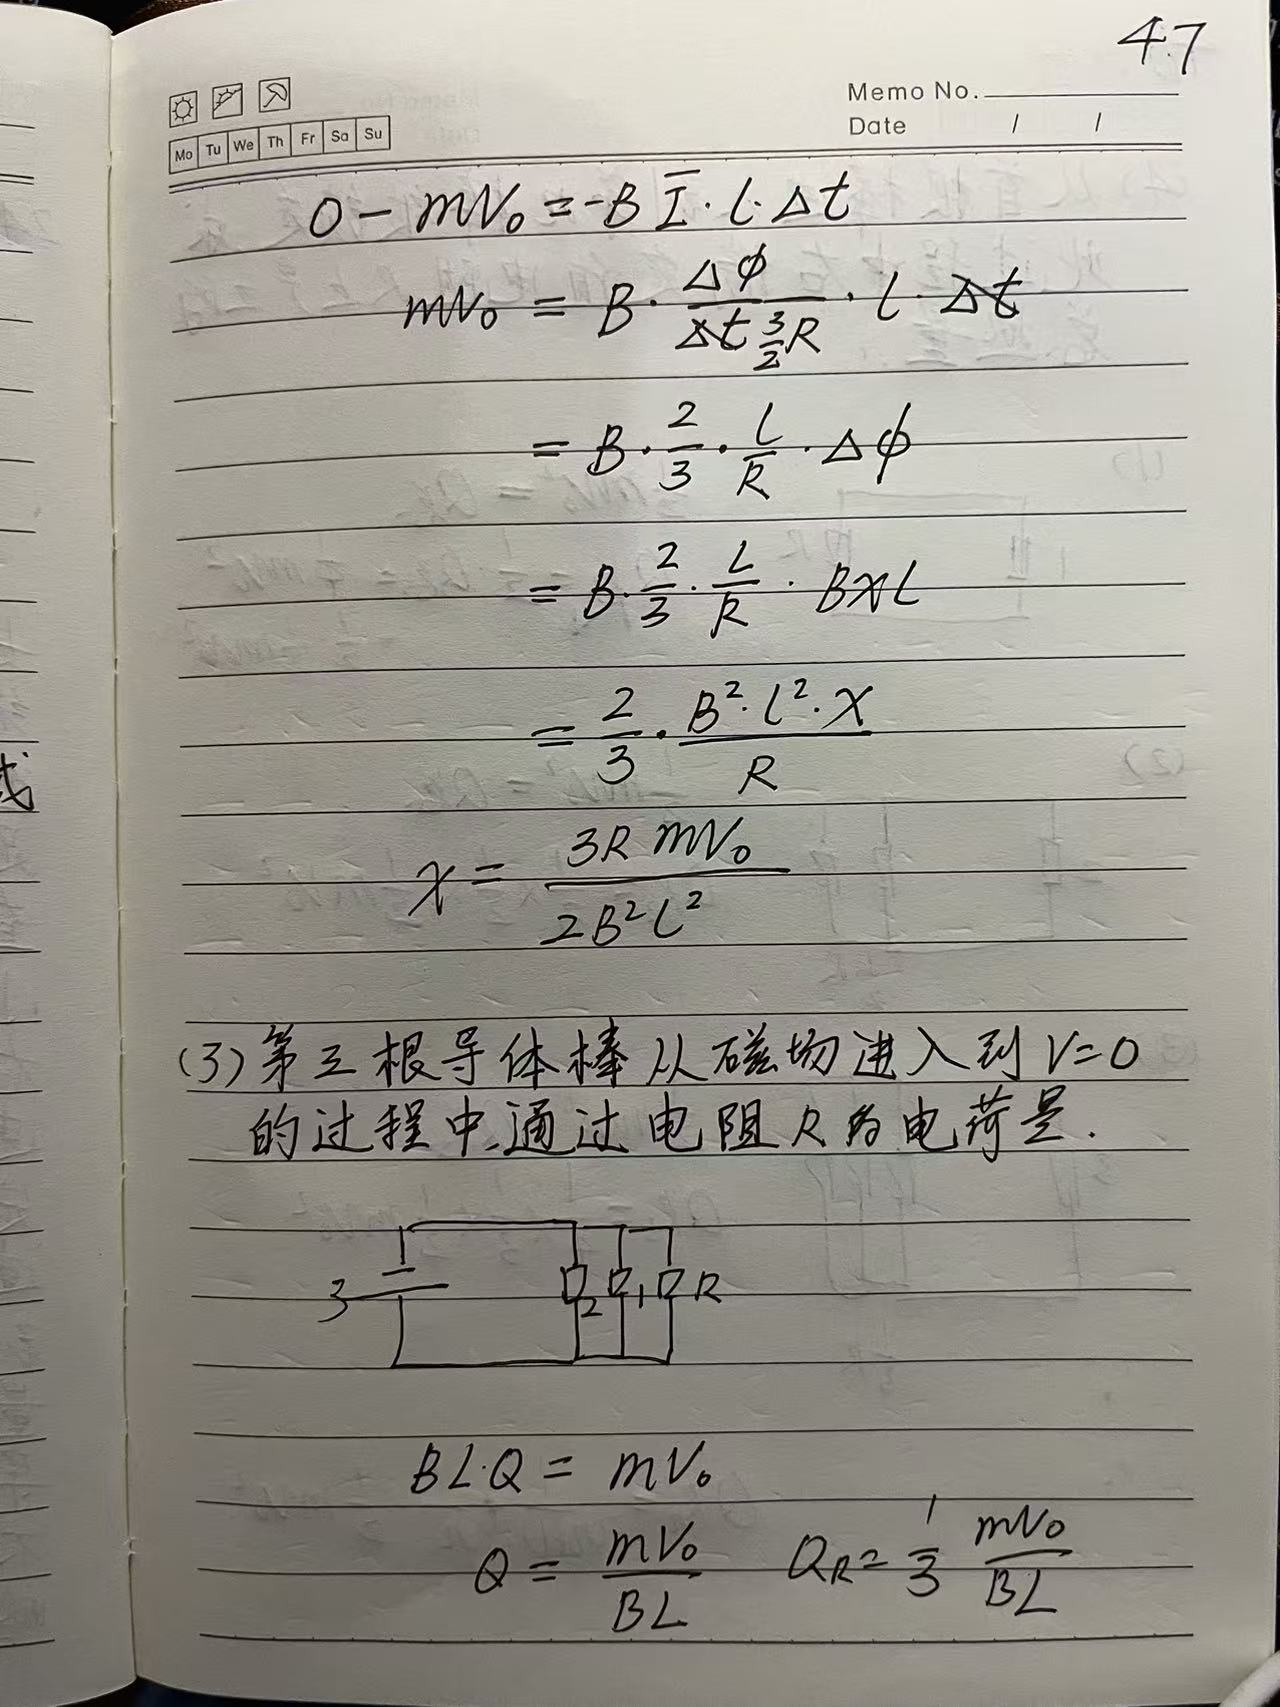 4.7
Memo No.
Date / /
Mo Tu We Th Fr Sa Su
0 - mV₀ = -B Ī · l · Δt
mV₀ = B · Δφ / (Δt 3/2 R) · l · Δt
= B · 2/3 · l/R · Δφ
= B · 2/3 · L/R · BxL
= 2/3 · B² · l² · x / R
x = 3R mV₀ / 2B²l²
(3) 第三根导体棒从磁场进入到V=0
的过程中,通过电阻R的电荷是.
3 2 1 R
BL·Q = mV₀
Q = mV₀ / BL Q_R = 1/3 mV₀ / BL
式